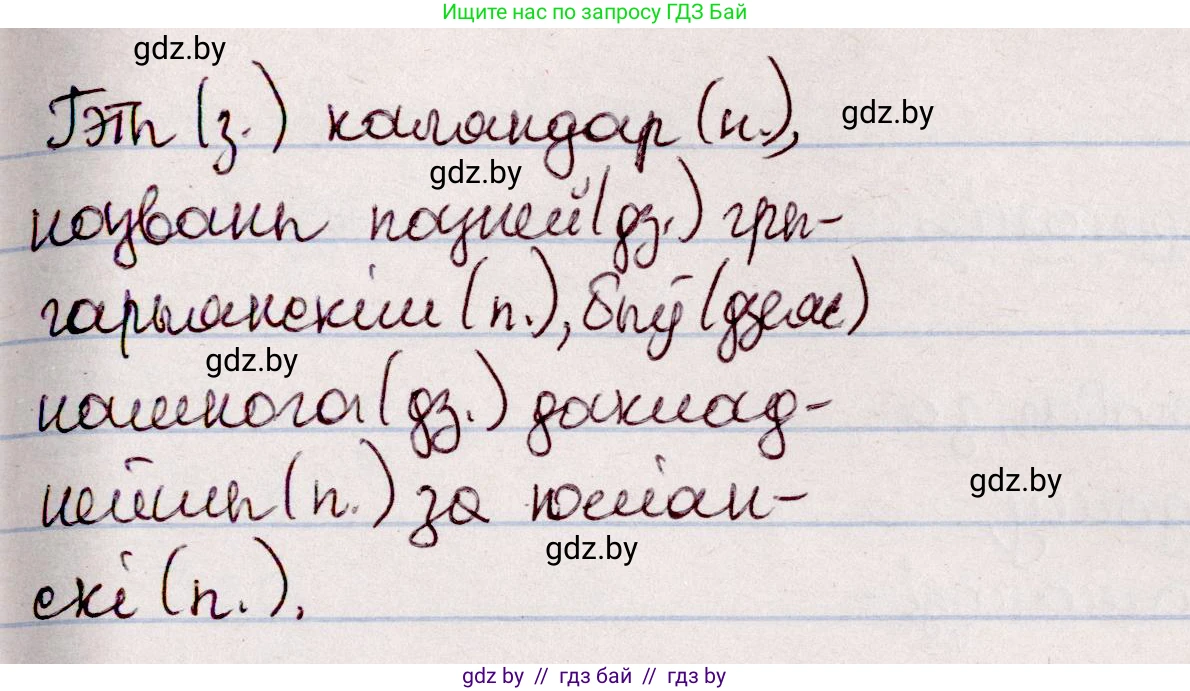 Ищите нас по запросу ГДЗ Бай
gdz.by
Гэты (з.) каляндар (н.),
gdz.by
gdz.by
названы пазней (дз.) гры-
гарыянскім (п.), быў (дзеясл.)
gdz.by
намнога (дз.) даклад-
нейшы (п.) за юліан-
gdz.by
gdz.by
скі (п.).
gdz.by // гдз бай // гдз by